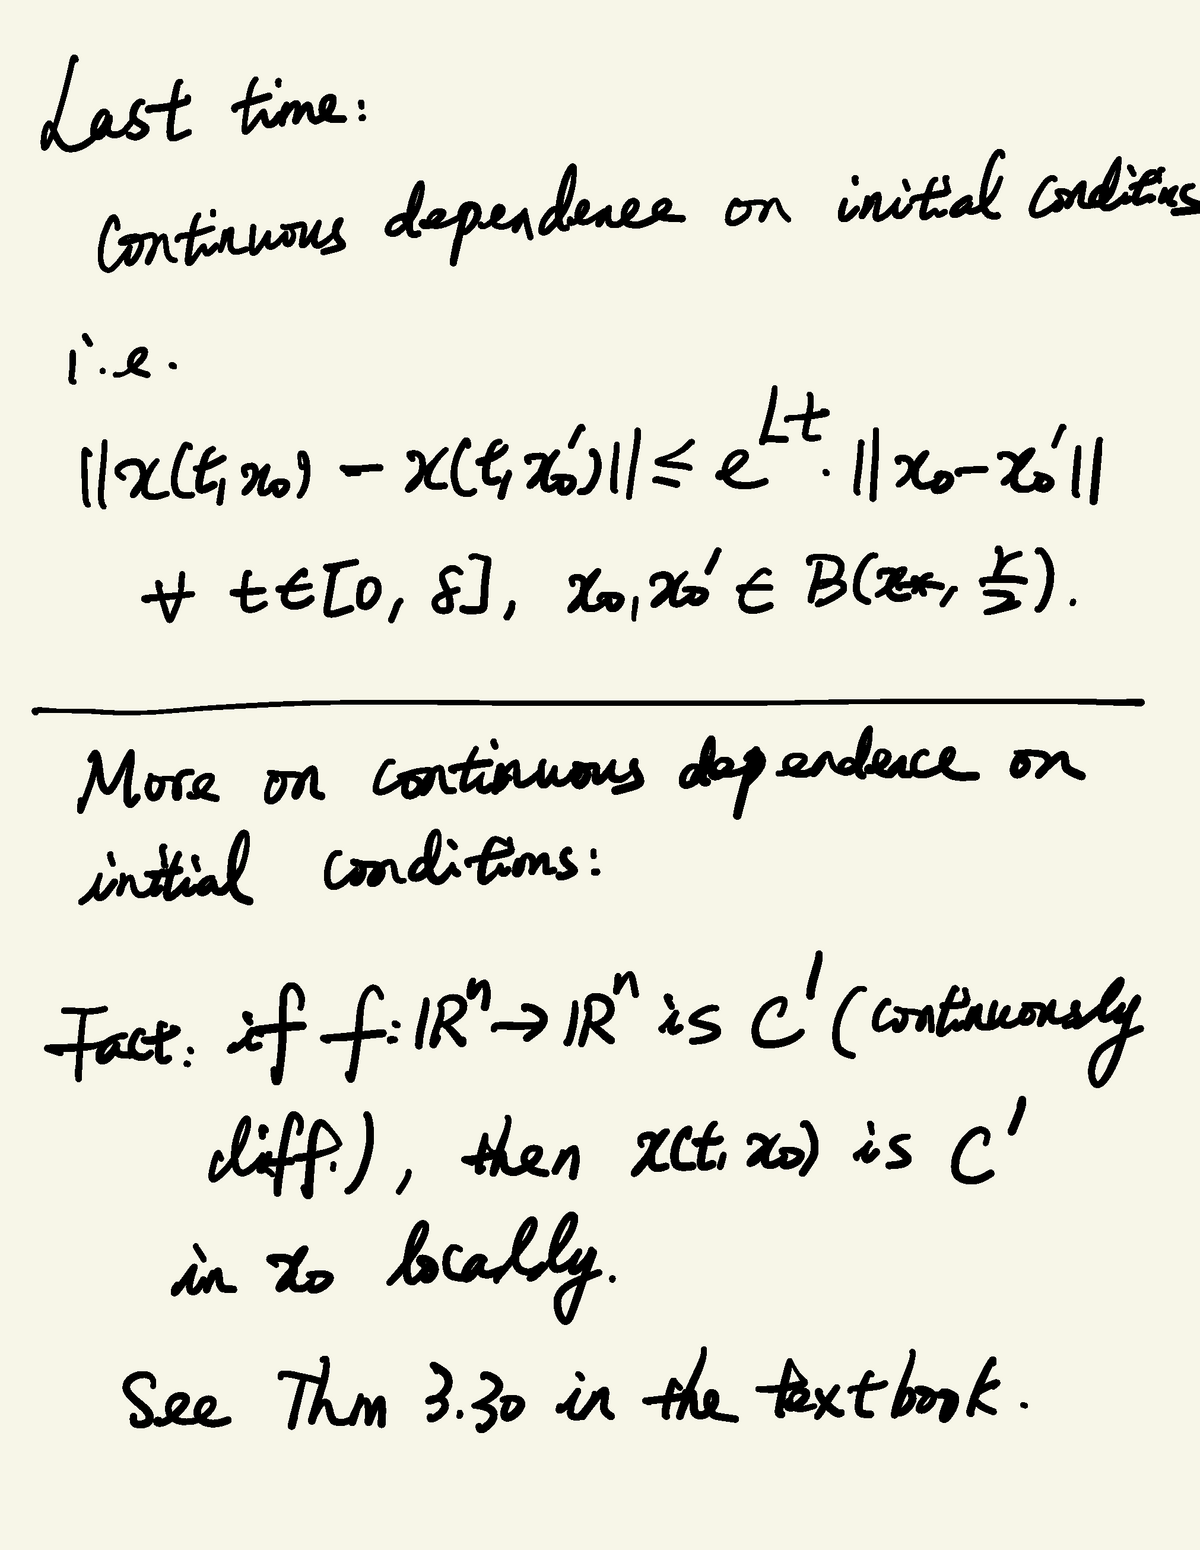 Last time:
Continuous dependence on initial conditions
i.e.
||x(t,x₀) - x(t,x₀′)|| ≤ e^{Lt} · ||x₀-x₀′||
∀ t∈[0, δ], x₀,x₀′ ∈ B(x_*, r/2).
More on continuous dependence on
initial conditions:
Fact: if f: ℝⁿ→ℝⁿ is C¹ (continuously
diff.), then x(t, x₀) is C¹
in x₀ locally.
See Thm 3.30 in the textbook.